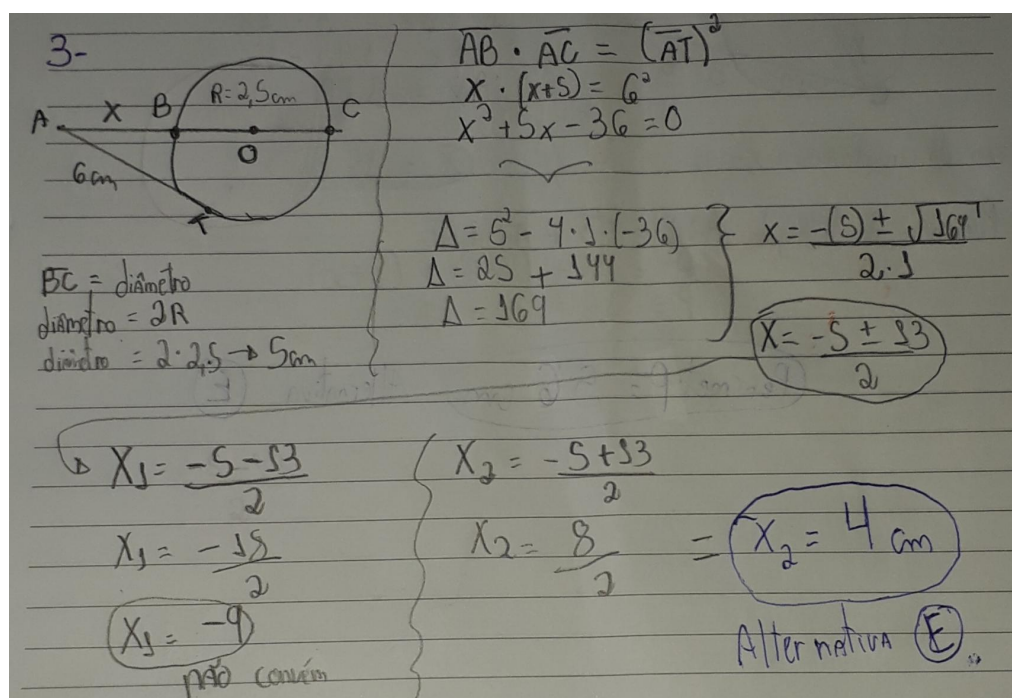 3-
R=2,5cm
A X B C
O
6cm
T
BC = diâmetro
diâmetro = 2R
diâmetro = 2·2,5 → 5cm
AB · AC = (AT)²
x · (x+5) = 6²
x² + 5x - 36 = 0
Δ = 5² - 4·1·(-36)
Δ = 25 + 144
Δ = 169
x = -(5) ± √169
2·1
x = -5 ± 13
2
X1 = -5-13
2
X1 = -18
2
X1 = -9
não convém
X2 = -5+13
2
X2 = 8
2
= X2 = 4 cm
Alternativa E